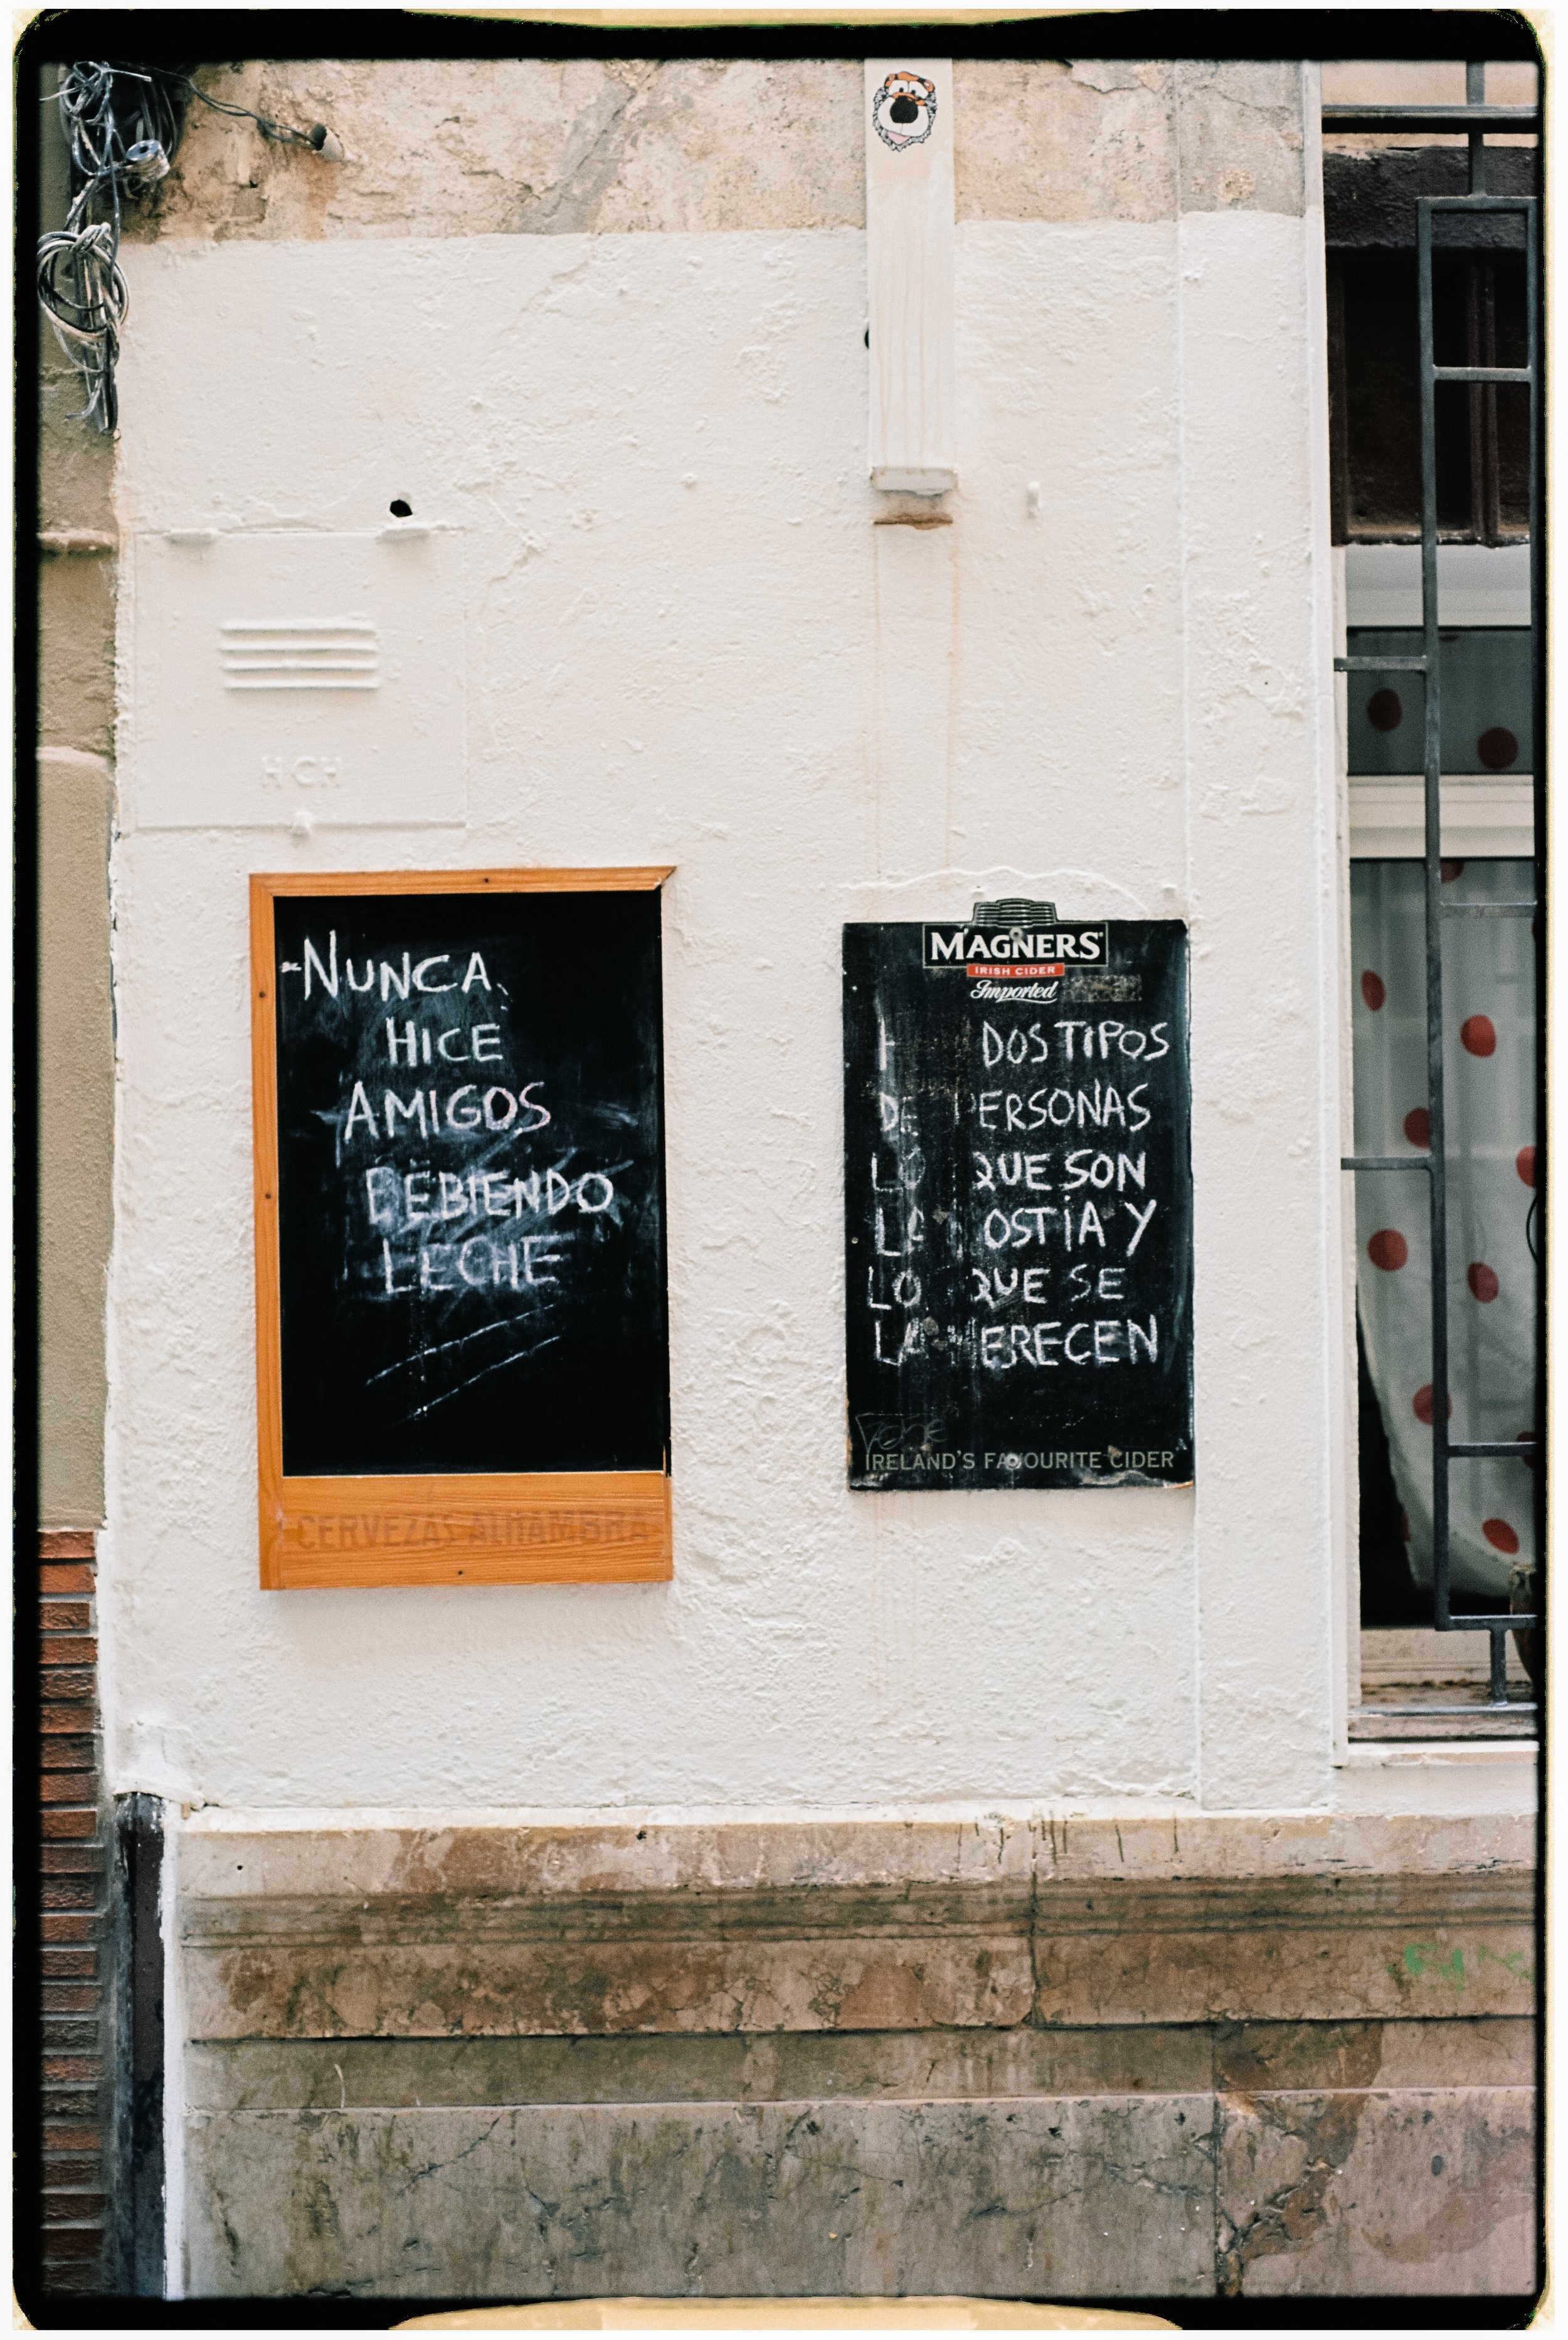 HCH
NUNCA
HICE
AMIGOS
BEBIENDO
LECHE
CERVEZAS ALHAMBRA
MAGNERS
IRISH CIDER
Imported
DOS TIPOS
DE PERSONAS
LOS QUE SON
LA OSTIA Y
LOS QUE SE
LA MERECEN
IRELAND'S FAVOURITE CIDER